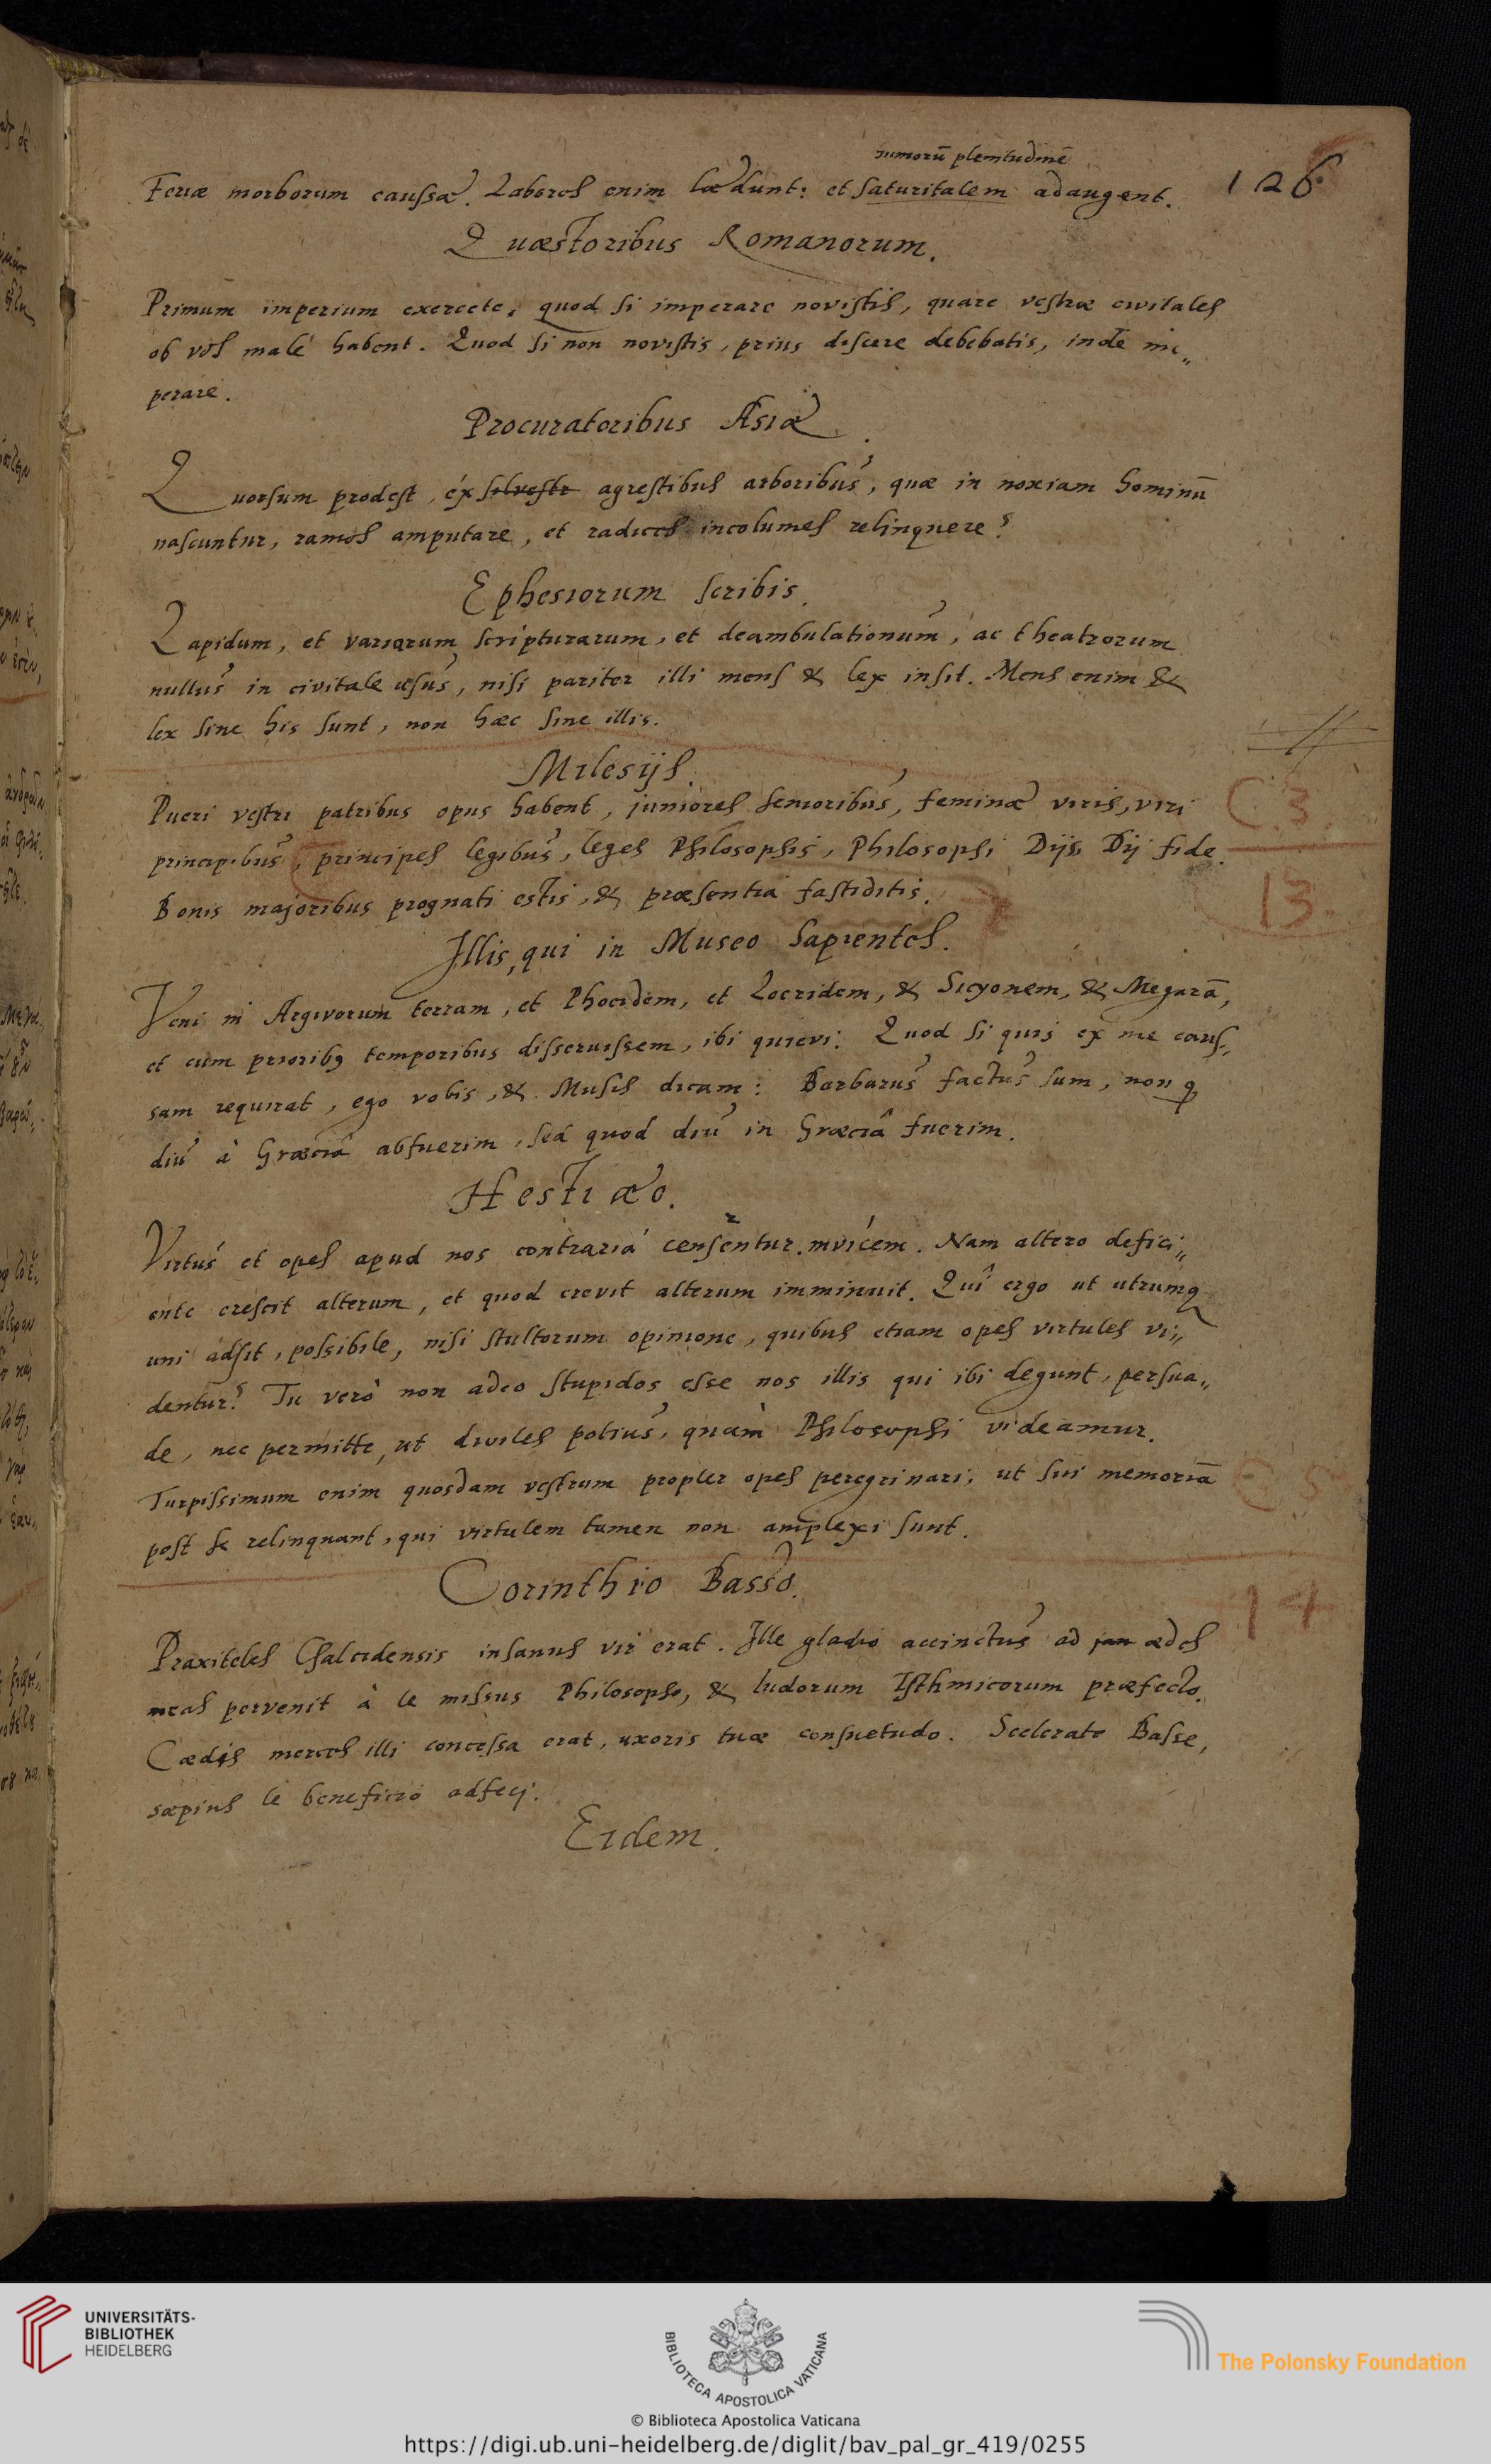 humorū plenitudinē
Feriæ morborum caussæ. Labores enim lædunt: et saturitatem adaugent. 126
Quæstoribus Romanorum.
Primum imperium exercete, quod si imperare novistis, quare vestræ civitates
ob vos malè habent. Quod si non novistis, prius discere debebatis, inde im„
perare.
Procuratoribus Asiæ.
Quorsum prodest, ex silvestr agrestibus arboribus, quæ in noxiam hominū
nascuntur, ramos amputare, et radices incolumes relinquere?
Ephesiorum scribis.
Lapidum, et variarum scripturarum, et deambulationum, ac theatrorum
nullus in civitate usus, nisi pariter illi mens & lex insit. Mens enim &
lex sine his sunt, non hæc sine illis.
Milesijs.
Pueri vestri patribus opus habent, juniores senioribus, feminæ viris, viri
principibus, principes legibus, leges Philosophis, Philosophi Dijs, Dij fide.
C. 3
Bonis majoribus prognati estis, & præsentia fastiditis.
13.
Illis, qui in Museo sapientes.
Veni in Argivorum terram, et Phocidem, et Locridem, & Sicyonem, & Megarā,
et cum priorib9 temporibus disseruissem, ibi quievi. Quod si quis ex me caus„
sam requirat, ego vobis, & Musis dicam: Barbarus factus sum, non q
diu à Græciâ abfuerim, sed quod diu in Græciâ fuerim.
Hestiæo.
Virtus et opes apud nos contraria censentur invicem. Nam altero defici„
ente crescit alterum, et quod crevit alterum imminuit. Quî ergo ut utrumq
uni adsit, possibile, nisi stultorum opinione, quibus etiam opes virtutes vi„
dentur? Tu verò non adeo stupidos esse nos illis qui ibi degunt, persua„
de, nec permitte, ut divites potius, quàm Philosophi videamur.
Turpissimum enim quosdam vestrum propter opes peregrinari, ut sui memoriā
post se relinquant, qui virtutem tamen non amplexi sunt.
Corinthio Basso.
14
Praxiteles Chalcidensis insanus vir erat. Ille gladio accinctus ad jan ædes
meas pervenit à te missus Philosopho, & ludorum Isthmicorum præfecto.
Cædis merces illi concessa erat, uxoris tuæ consuetudo. Scelerate Basse,
sæpius te beneficio adfeci.
Eidem.
UNIVERSITÄTS-
BIBLIOTHEK
HEIDELBERG
BIBLIOTECA APOSTOLICA VATICANA
The Polonsky Foundation
© Biblioteca Apostolica Vaticana
https://digi.ub.uni-heidelberg.de/diglit/bav_pal_gr_419/0255